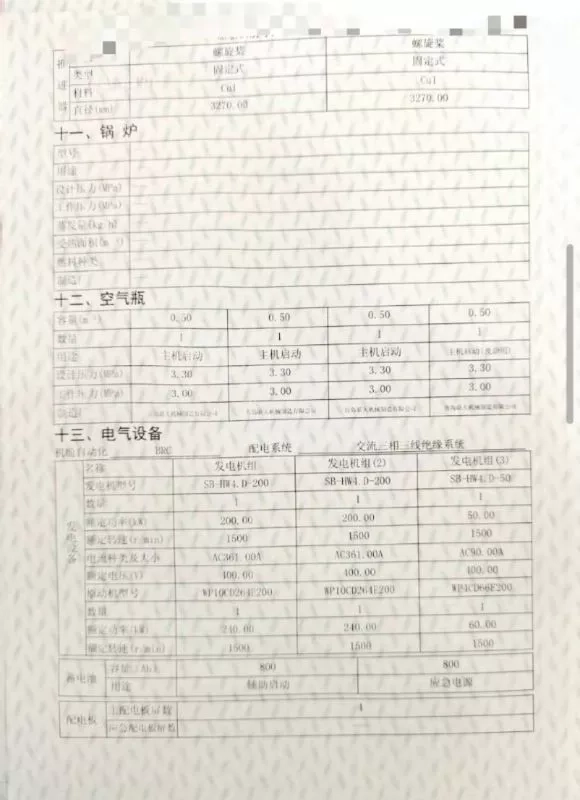 螺旋桨 螺旋桨
推进器 类型 固定式 固定式
材料 Cu1 Cu1
直径(mm) 3270.00 3270.00
十一、锅 炉
型号
用途
设计压力(MPa)
工作压力(MPa)
蒸发量(kg/h)
受热面积(m²)
燃料种类
十二、空气瓶
容量(m³) 0.50 0.50 0.50 0.50
数量 1 1 1 1
用途 主机启动 主机启动 主机启动
设计压力(MPa) 3.30 3.30 3.30 3.30
工作压力(MPa) 3.00 3.00 3.00 3.00
十三、电气设备
机舱自动化 BRC 配电系统 交流三相三线绝缘系统
发电设备 名称 发电机组 发电机组(2) 发电机组(3)
发电机型号 SB-HW4.D-200 SB-HW4.D-200 SB-HW4.D-50
数量 1 1 1
额定功率(kW) 200.00 200.00 50.00
额定转速(r/min) 1500 1500 1500
电流种类及大小 AC361.00A AC361.00A AC90.00A
额定电压(V) 400.00 400.00 400.00
原动机型号 WP10CD264E200 WP10CD264E200 WP4CD66E200
数量 1 1 1
额定功率(kW) 240.00 240.00 60.00
额定转速(r/min) 1500 1500 1500
蓄电池 容量(Ah) 800 800
用途 辅助启动 应急电源
配电板 主配电板屏数 4
应急配电板屏数